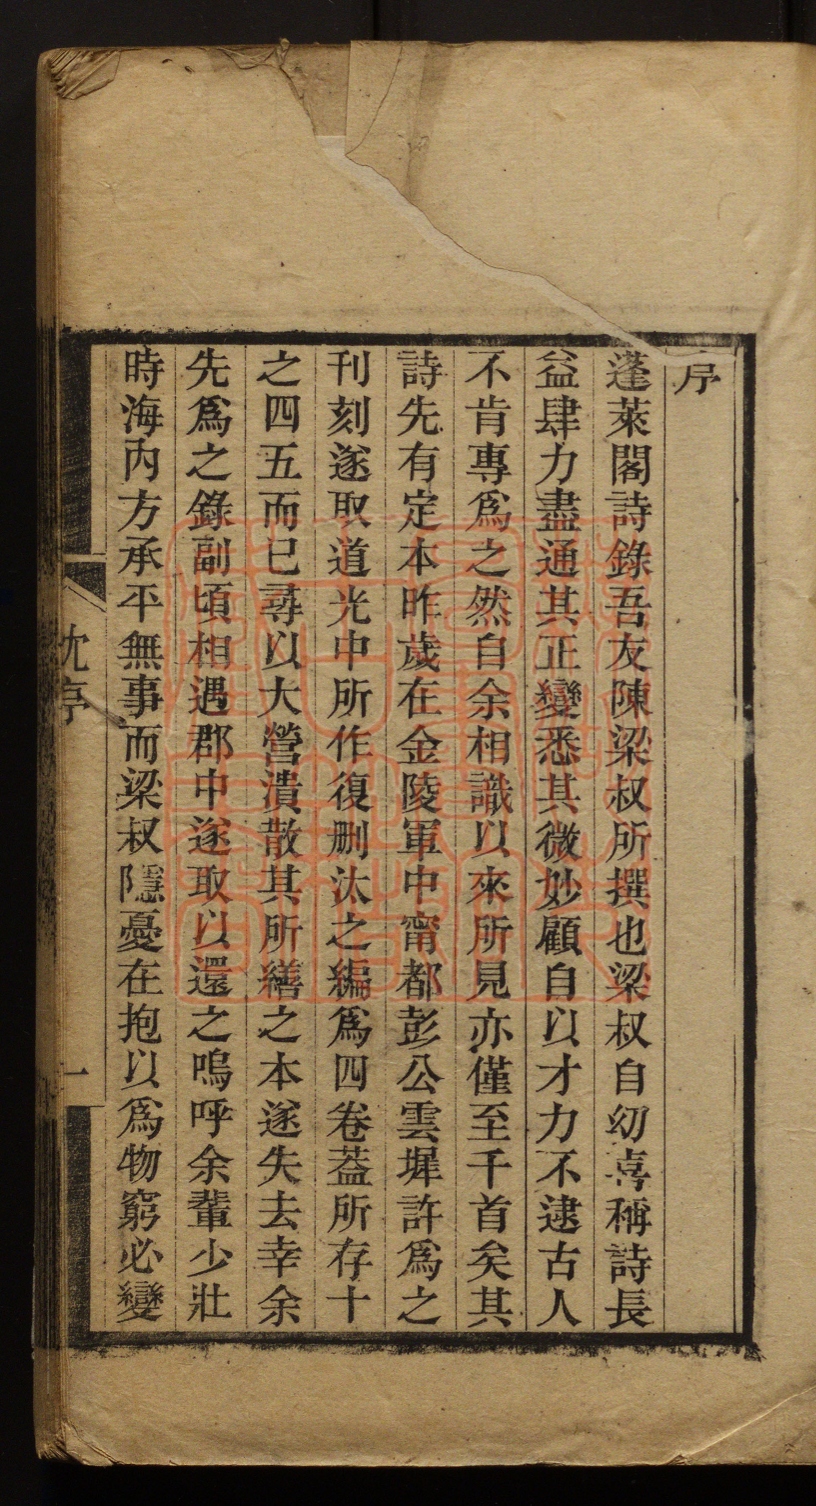 序
蓬萊閣詩錄吾友陳梁叔所撰也梁叔自幼喜稱詩長
益肆力盡通其正變悉其微妙顧自以才力不逮古人
不肯專爲之然自余相識以來所見亦僅至千首矣其
詩先有定本昨歲在金陵軍中甯都彭公雲墀許爲之
刊刻遂取道光中所作復删汰之編爲四卷葢所存十
之四五而已尋以大營潰散其所繕之本遂失去幸余
先爲之錄副頃相遇郡中遂取以還之嗚呼余輩少壯
時海內方承平無事而梁叔隱憂在抱以爲物窮必變
沈序
一